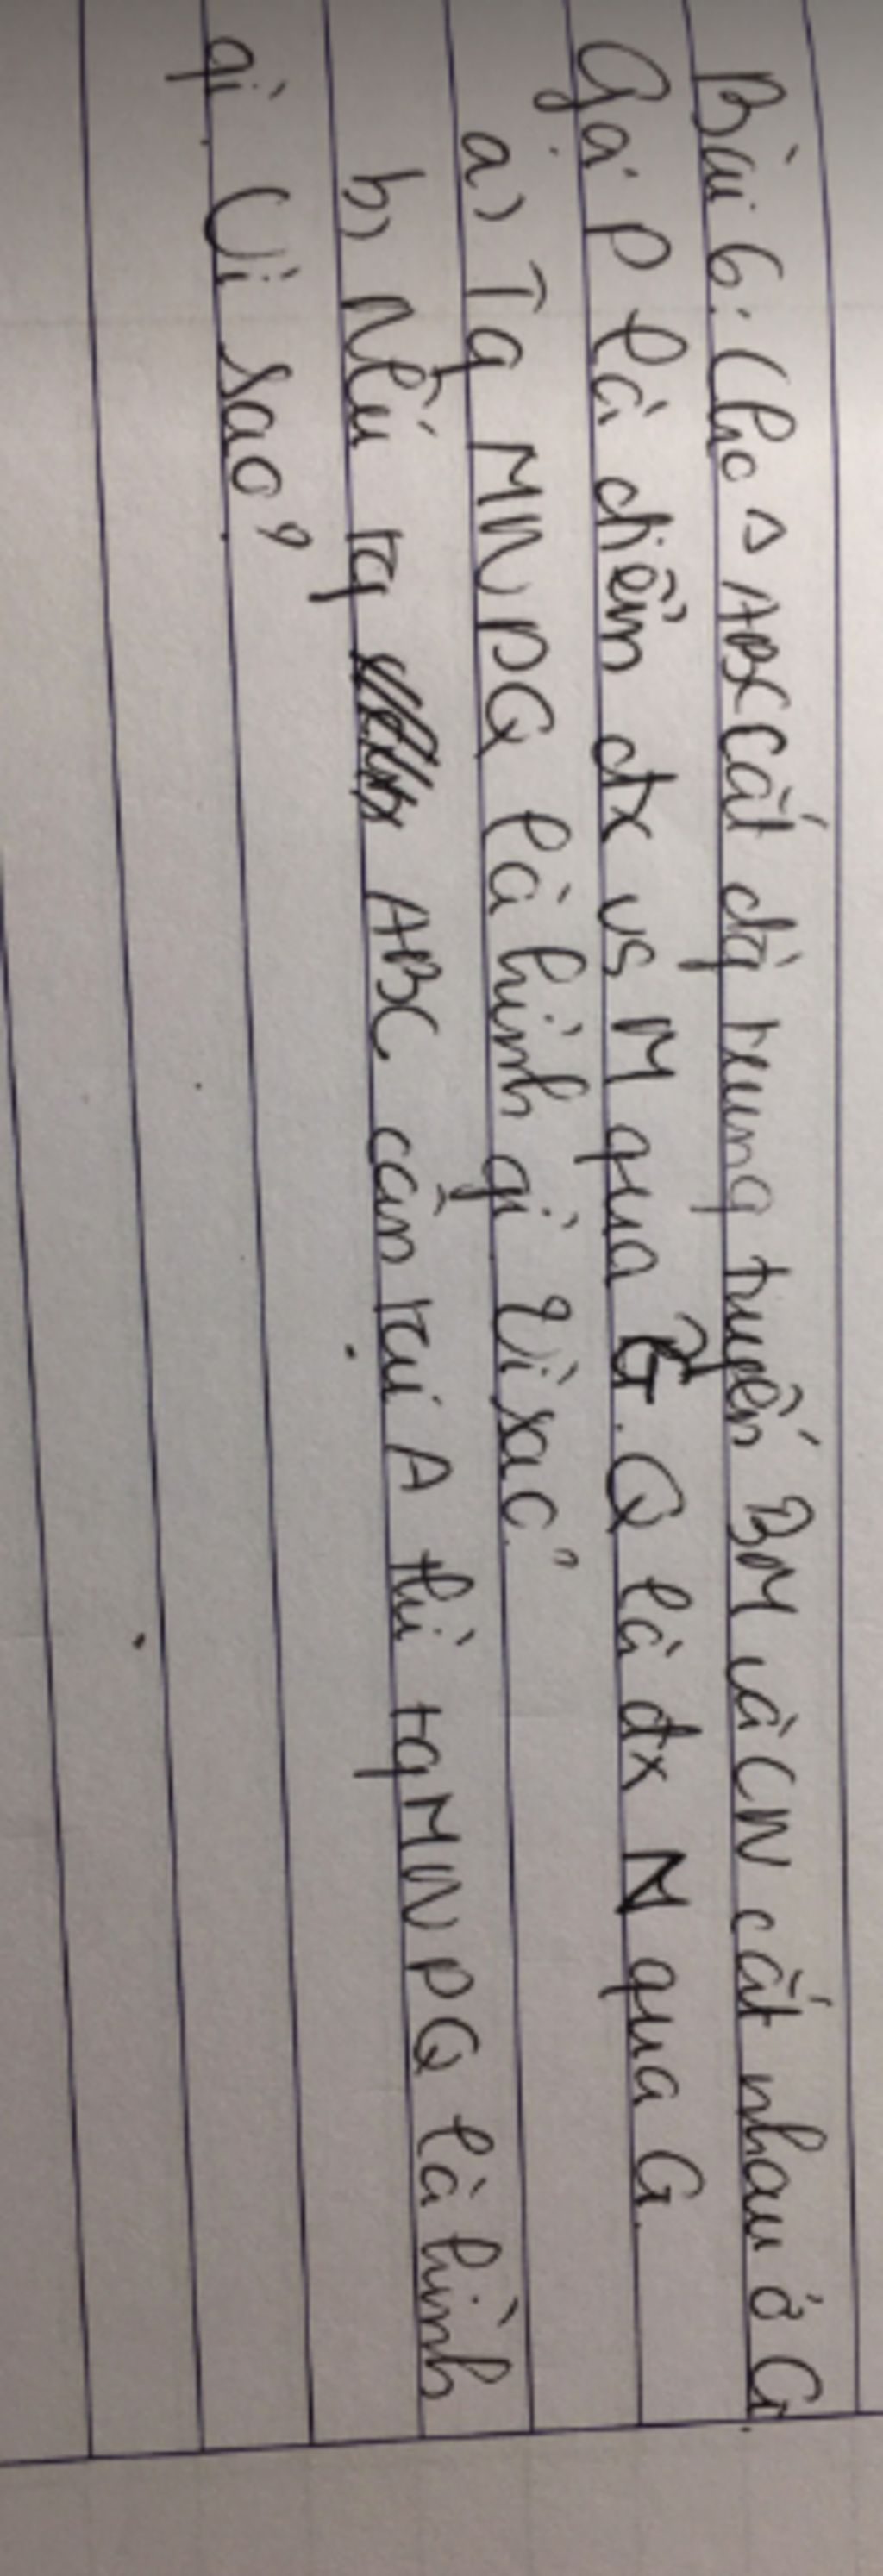 Bài 6: Cho △ ABC cắt đg trung tuyến BM và CN cắt nhau ở G.
Gọi P là điểm đx vs M qua G. Q là đx N qua G.
a) Tg MNPQ là hình gì. Vì sao?
b) Nếu tg ABC cân tại A thì tg MNPQ là hình
gì. Vì sao?